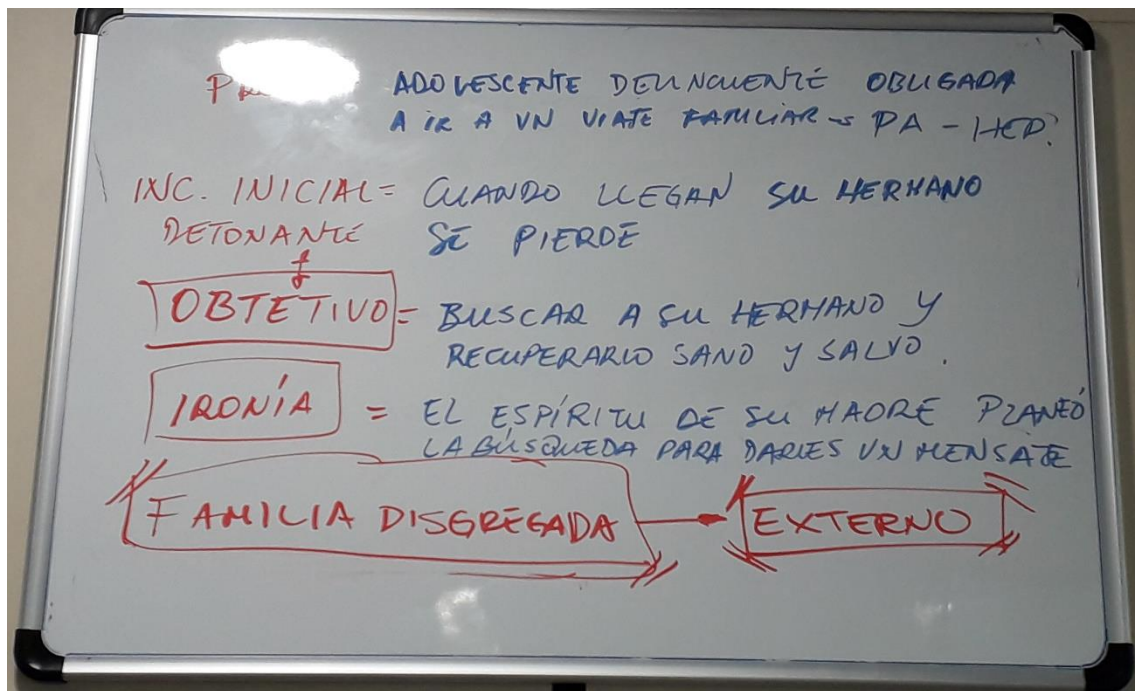 ADOLESCENTE DELINCUENTE OBLIGADA
A IR A UN VIAJE FAMILIAR → PA - HED.
INC. INICIAL = CUANDO LLEGAN SU HERMANO
DETONANTE SE PIERDE
OBJETIVO = BUSCAR A SU HERMANO Y
RECUPERARLO SANO Y SALVO.
IRONÍA = EL ESPÍRITU DE SU MADRE PLANEÓ
LA BÚSQUEDA PARA DARLES UN MENSAJE
FAMILIA DISGREGADA → EXTERNO